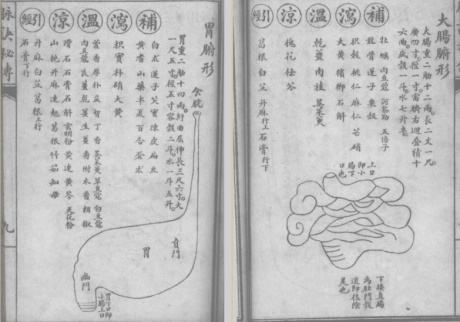 大腸腑形
大腸重二觔十二兩長二丈一尺
廣四寸徑一寸當臍右迴叠積十
六曲盛穀一斗水七升半
補
牡蠣 肉豆蔻 訶黎勒 五倍子
龍骨 蓮子 粟殼
瀉
枳殼 桃仁 麻仁 芒硝
大黃 檳榔 石斛
溫
乾薑 肉桂 吳茱萸
涼
槐花 條芩
引經
葛根 白芷 升麻行上 石膏行下
上口
即小
腸下
口也
下接直腸
為肛門穀
道即後陰
是也
胃腑形
胃重二觔十四兩紆曲屈伸長二尺六寸大
一尺五寸徑五寸容穀二斗水一斗五升
補
白朮 蓮子 芡實 陳皮 扁豆
黃耆 山藥 半夏 百合 蒼朮
瀉
枳實 朴硝 大黃
溫
藿香 厚朴 益智 丁香 吳茱萸 草豆蔻 白豆蔻
肉豆蔻 良薑 乾薑 生薑 香附 木香 胡椒
涼
滑石 石膏 石斛 玄明粉 黃連 黃芩 天花粉
山梔 升麻 連翹 葛根 竹茹 知母
引經
升麻 白芷 葛根上行
石膏下行
食脘
賁門
胃
幽門
胃下口即
小腸上口
脉訣秘傳
九